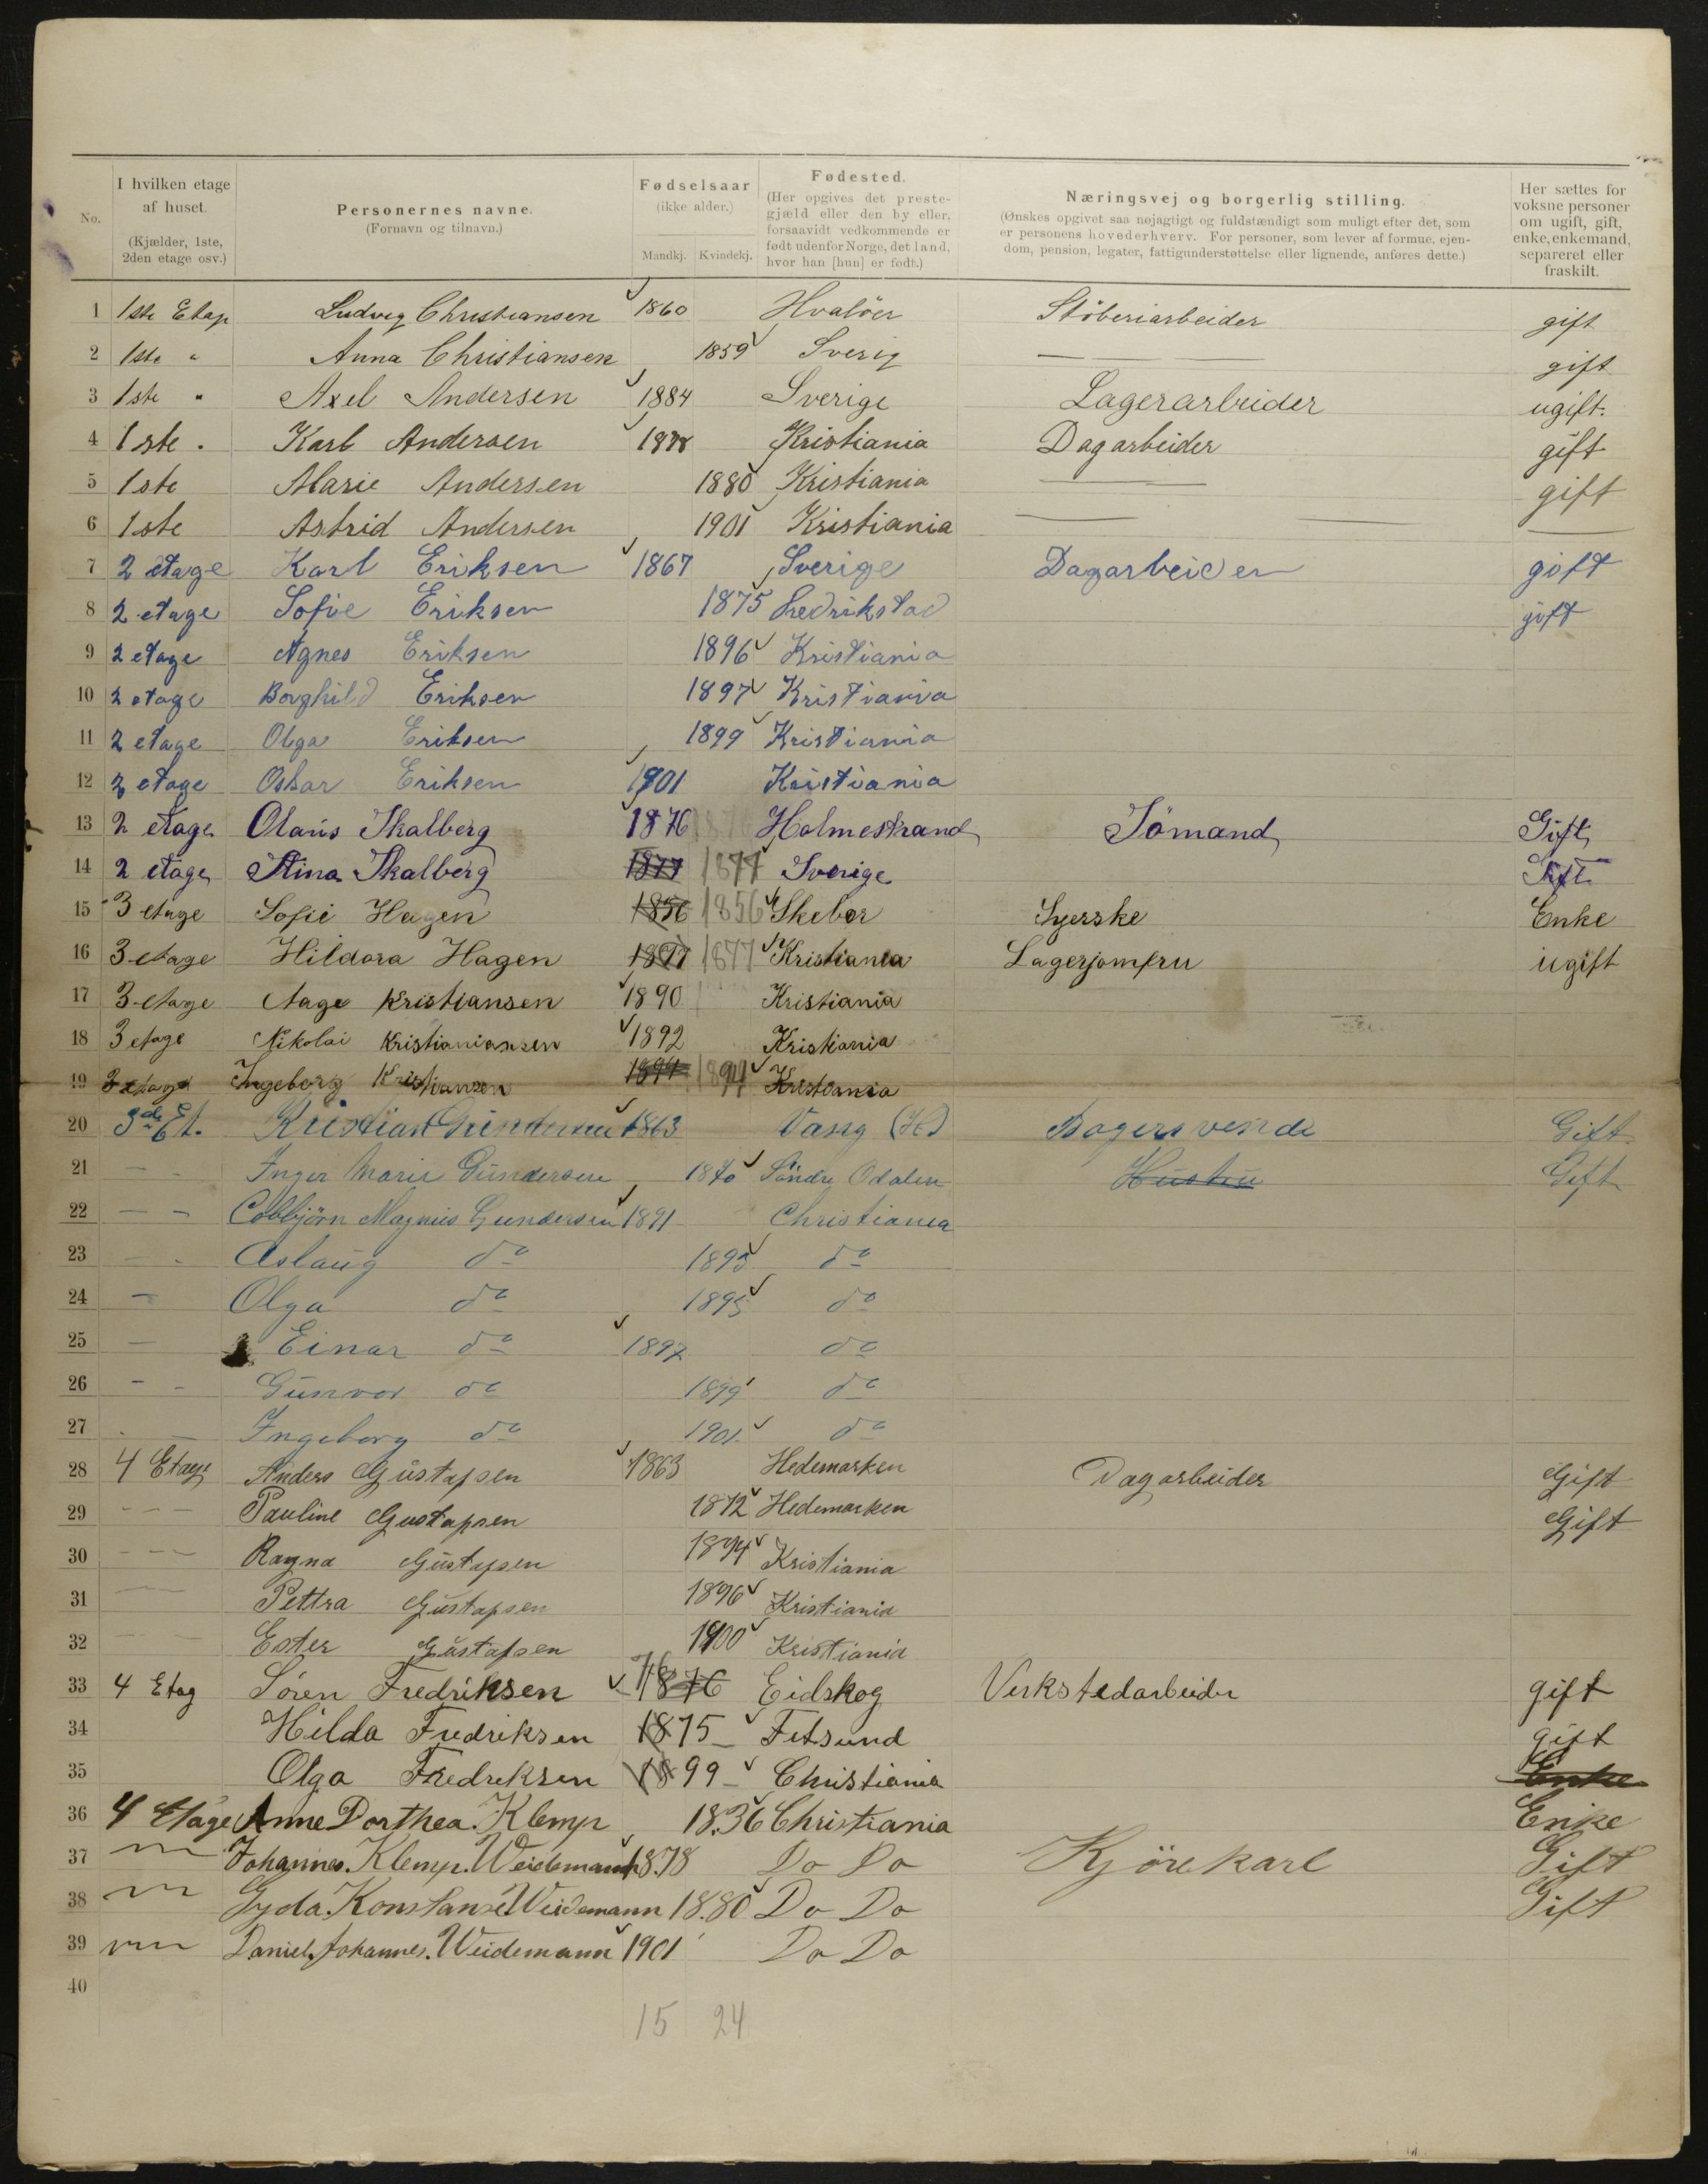 No.
I hvilken etage af huset.
(Kjælder, 1ste, 2den etage osv.)
Personernes navne.
(Fornavn og tilnavn.)
Fødselsaar
(ikke alder.)
Mandkj. Kvindekj.
Fødested.
(Her opgives det prestegjæld eller den by eller, forsaavidt vedkommende er født udenfor Norge, det land, hvor han [hun] er født.)
Næringsvej og borgerlig stilling.
(Ønskes opgivet saa nøjagtigt og fuldstændigt som muligt efter det, som er personens hovederhverv. For personer, som lever af formue, ejendom, pension, legater, fattigunderstøttelse eller lignende, anføres dette.)
Her sættes for voksne personer om ugift, gift, enke, enkemand, separeret eller fraskilt.
1 1ste Etage Ludvig Christiansen 1860 Hvalöer Stöberiarbeider gift
2 1ste " Anna Christiansen 1859 Sverig gift
3 1ste " Axel Andersen 1884 Sverige Lagerarbeider ugift
4 1ste " Karl Andersen 1878 Kristiania Dagarbeider gift
5 1ste Marie Andersen 1880 Kristiania gift
6 1ste Astrid Andersen 1901 Kristiania
7 2 etage Karl Eriksen 1867 Sverige Dagarbeider gift
8 2 etage Sofie Eriksen 1875 Fredrikstad gift
9 2 etage Agnes Eriksen 1896 Kristiania
10 2 etage Borghild Eriksen 1897 Kristiania
11 2 etage Olga Eriksen 1899 Kristiania
12 2 etage Oskar Eriksen 1901 Kristiania
13 2 etage Olaus Skalberg 1876 Holmestrand Sömand Gift
14 2 etage Stina Skalberg 1877 1877 Sverige Gift
15 3 etage Sofie Hagen 1856 1856 Skeber Syerske Enke
16 3 etage Hildora Hagen 1877 1877 Kristiania Lagerjomfru ugift
17 3 etage Aage Kristiansen 1890 Kristiania
18 3 etage Nikolai Kristianiansen 1892 Kristiania
19 3 etage Ingeborg Kristiansen 1894 1894 Kristiania
20 3de Et. Kristian Gundersen 1863 Vang (H) Bagersvende Gift
21 — - Inger Marie Gundersen 1870 Söndre Odalen Hustru Gift
22 — - Cobbjörn Magnus Gundersen 1891 Christiania
23 — - Aslaug do 1893 do
24 — Olga do 1895 do
25 — Einar do 1897 do
26 — - Gunvor do 1899 do
27 — Ingeborg do 1901 do
28 4 Etage Anders Gustafsen 1863 Hedemarken Dagarbeider Gift
29 — — — Pauline Gustafsen 1872 Hedemarken Gift
30 — — — Ragna Gustafsen 1894 Kristiania
31 — — Pettra Gustafsen 1896 Kristiania
32 — — Ester Gustafsen 1900 Kristiania
33 4 Etag Sören Fredriksen 1876 76 Eidskog Verkstedarbeider gift
34 Hilda Fredriksen 1875 Fetsund gift
35 Olga Fredreksen 1899 Christiania Enke
36 4 Etage Anne Dorthea Klemp 1836 Christiania Enke
37 Johannes. Klemp. Weidemann 1878 Do Do Kjörekarl Gift
38 Gyda Konstanse Weidemann 1880 Do Do Gift
39 Daniel Johannes. Weidemann 1901 Do Do
40
15 24